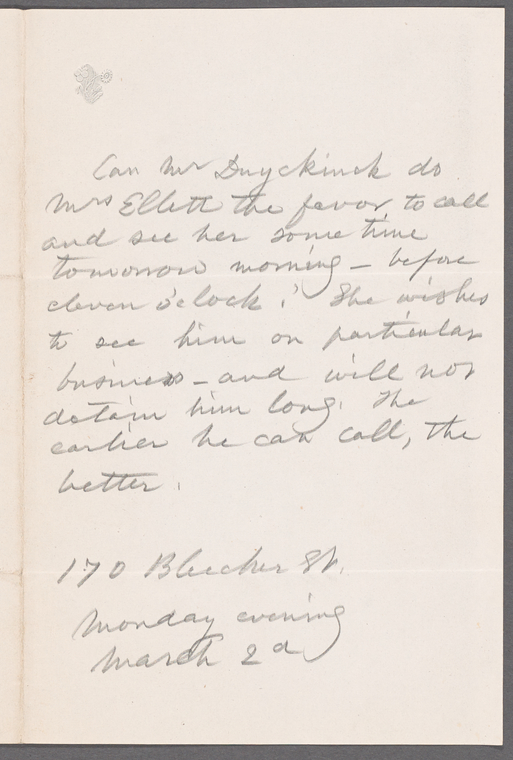 Can Mr Duyckinck do
Mrs Ellett the favor to call
and see her some time
tomorrow morning – before
eleven o'clock? She wishes
to see him on particular
business – and will not
detain him long. The
earlier he can call, the
better.
170 Bleecker St.
Monday evening
March 2d